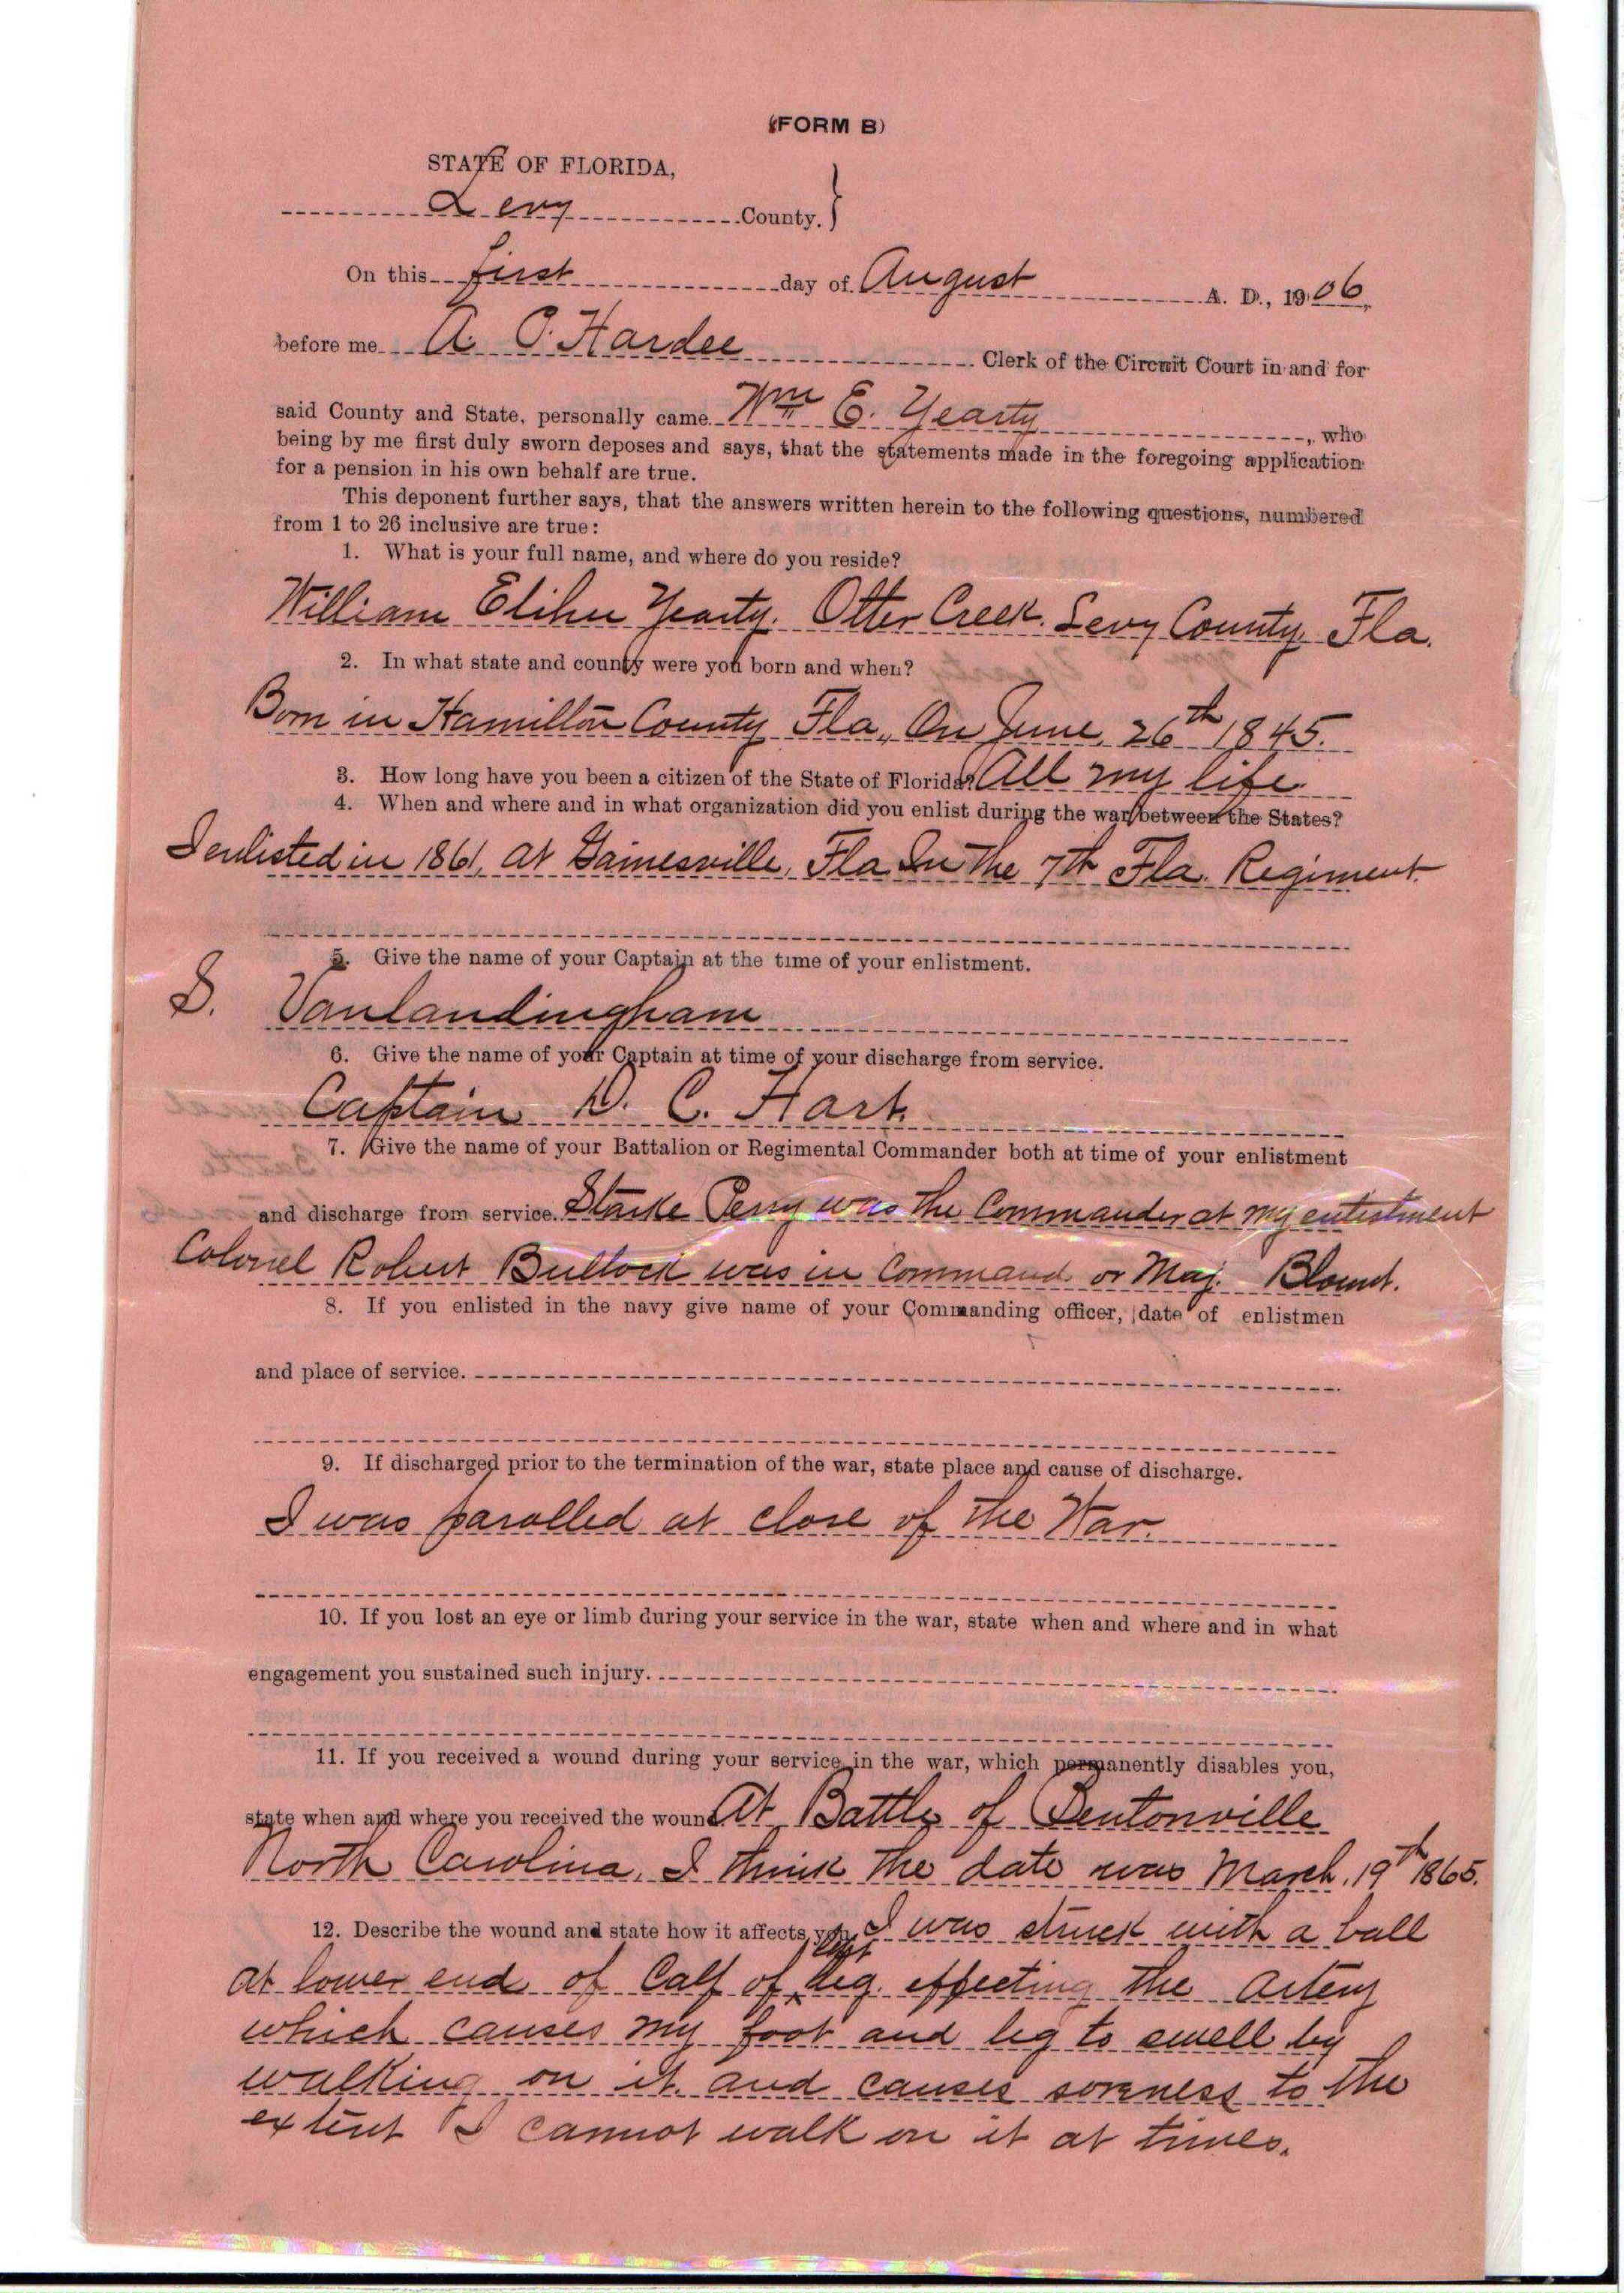 (FORM B)
STATE OF FLORIDA,
Levy County.
On this first day of August A. D., 1906,
before me A. C. Hardee Clerk of the Circuit Court in and for
said County and State, personally came Wm E. Yearty, who
being by me first duly sworn deposes and says, that the statements made in the foregoing application
for a pension in his own behalf are true.
This deponent further says, that the answers written herein to the following questions, numbered
from 1 to 26 inclusive are true:
1. What is your full name, and where do you reside?
William Elihu Yearty. Otter Creek. Levy County, Fla.
2. In what state and county were you born and when?
Born in Hamilton County Fla., On June, 26th 1845.
3. How long have you been a citizen of the State of Florida? All my life.
4. When and where and in what organization did you enlist during the war between the States?
I enlisted in 1861, at Gainesville, Fla In the 7th Fla. Regiment.
5. Give the name of your Captain at the time of your enlistment.
S. Vanlandingham
6. Give the name of your Captain at time of your discharge from service.
Captain D. C. Hart.
7. Give the name of your Battalion or Regimental Commander both at time of your enlistment
and discharge from service. Starke Perry was the Commander at my entistment
Colonel Robert Bullock was in Command or Maj. Blount.
8. If you enlisted in the navy give name of your Commanding officer, date of enlistmen
and place of service.
9. If discharged prior to the termination of the war, state place and cause of discharge.
I was parolled at close of the War.
10. If you lost an eye or limb during your service in the war, state when and where and in what
engagement you sustained such injury.
11. If you received a wound during your service in the war, which permanently disables you,
state when and where you received the wound At Battle of Bentonville
North Carolina, I think the date was March, 19th 1865.
12. Describe the wound and state how it affects you. I was struck with a ball
at lower end of Calf of left leg. effecting the artery
which causes my foot and leg to swell by
walking on it. and causes soreness to the
extent I cannot walk on it at times.